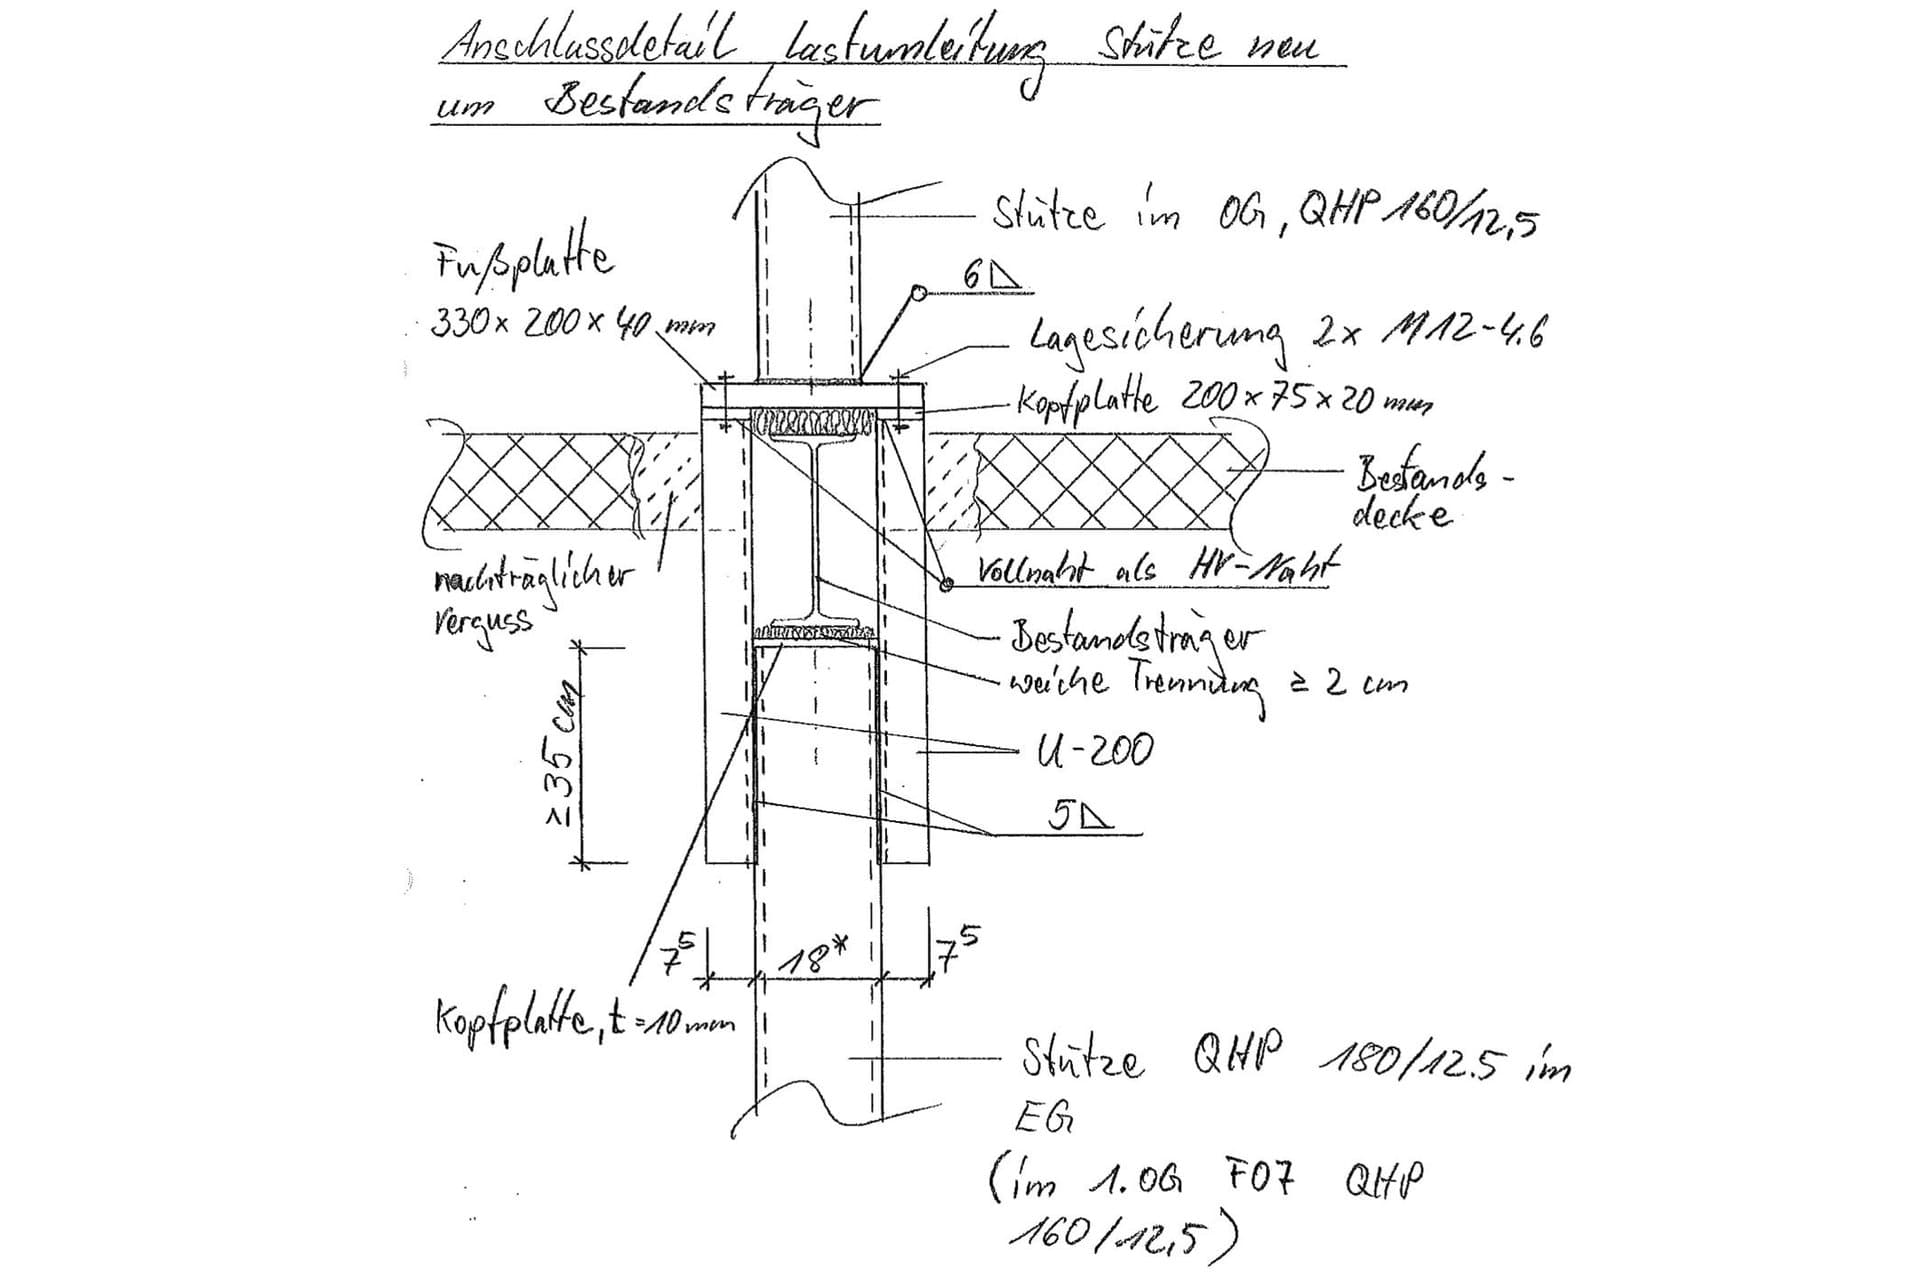 Anschlussdetail Lastumleitung Stütze neu
um Bestandsträger
Stütze im OG, QHP 160/12,5
Fußplatte
330 x 200 x 40 mm
6
Lagesicherung 2x M12-4.6
Kopfplatte 200 x 75 x 20 mm
Bestands-
decke
nachträglicher
Verguss
Vollnaht als HV-Naht
Bestandsträger
weiche Trennung ≥ 2 cm
≥ 35 cm
U-200
5
7⁵ 18* 7⁵
Kopfplatte, t = 10 mm
Stütze QHP 180/12.5 im
EG
(im 1. OG F07 QHP
160/12,5)